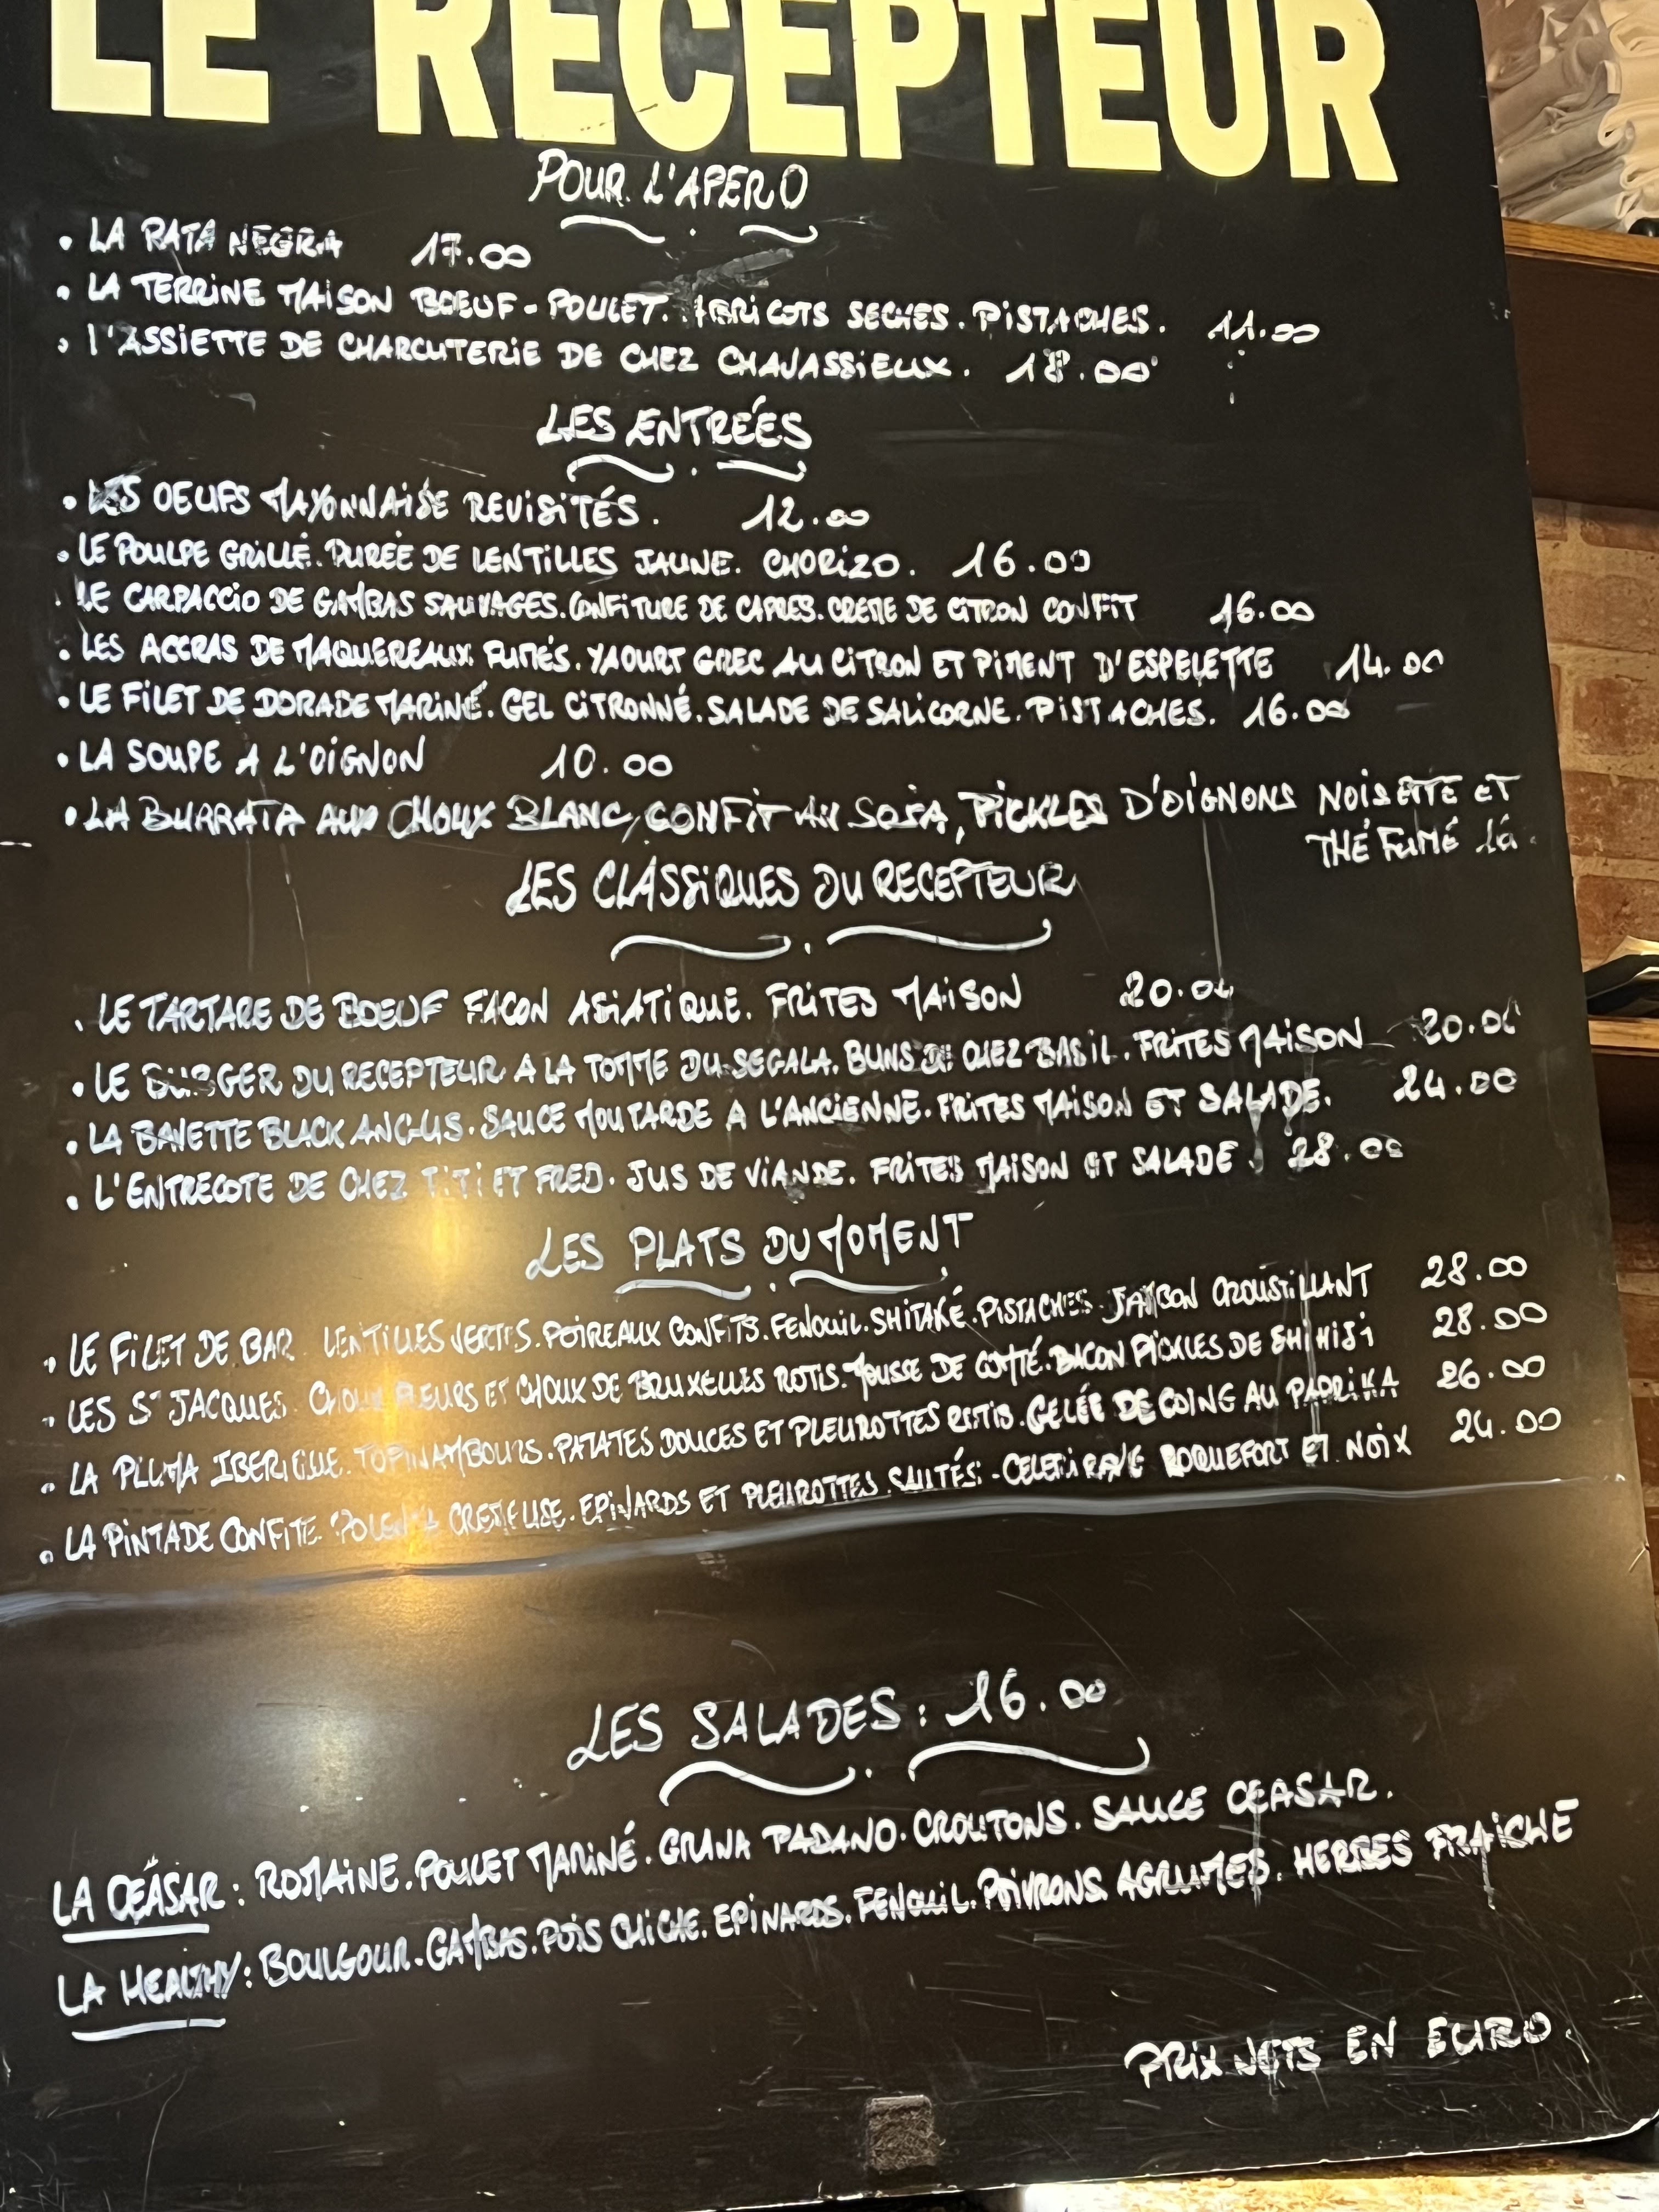 LE RECEPTEUR
POUR L'APERO
• LA RATA NEGRA 17.00
• LA TERRINE MAISON BOEUF - POULET. ABRICOTS SECHES. PISTACHES. 11.00
• L'ASSIETTE DE CHARCUTERIE DE CHEZ CHAVASSIEUX. 18.00
LES ENTRÉES
• LES OEUFS MAYONNAISE REVISITÉS. 12.00
• LE POULPE GRILLÉ. PURÉE DE LENTILLES JAUNE. CHORIZO. 16.00
• LE CARPACCIO DE GAMBAS SAUVAGES. CONFITURE DE CAPRES. CREME DE CITRON CONFIT 16.00
• LES ACCRAS DE MAQUEREAUX FUMÉS. YAOURT GREC AU CITRON ET PIMENT D'ESPELETTE 14.00
• LE FILET DE DORADE MARINÉ. GEL CITRONNÉ. SALADE DE SALICORNE. PISTACHES. 16.00
• LA SOUPE A L'OIGNON 10.00
• LA BURRATA AUX CHOUX BLANC, CONFIT AU SOJA, PICKLES D'OIGNONS NOISETTE ET
THÉ FUMÉ
LES CLASSIQUES DU RECEPTEUR
• LE TARTARE DE BOEUF FACON ASIATIQUE. FRITES MAISON 20.00
• LE BURGER DU RECEPTEUR A LA TOMME DU SEGALA. BUNS DE CHEZ BASIL. FRITES MAISON 20.00
• LA BAVETTE BLACK ANGUS. SAUCE MOUTARDE A L'ANCIENNE. FRITES MAISON ET SALADE. 24.00
• L'ENTRECOTE DE CHEZ TITI ET FRED. JUS DE VIANDE. FRITES MAISON ET SALADE. 28.00
LES PLATS DU MOMENT
• LE FILET DE BAR. LENTILLES VERTES. POIREAUX CONFITS. FENOUIL. SHITAKÉ. PISTACHES. JAMBON CROUSTILLANT 28.00
• LES ST JACQUES. CHOUX FLEURS ET CHOUX DE BRUXELLES ROTIS. MOUSSE DE COMTÉ. BACON PICKLES DE SHIMIJI 28.00
• LA PLUMA IBERIQUE. TOPINAMBOURS. PATATES DOUCES ET PLEUROTTES ROTIS. GELÉE DE COING AU PAPRIKA 26.00
• LA PINTADE CONFITE. POLENTA CREMEUSE. EPINARDS ET PLEUROTTES SAUTÉS. CELERI RAVE ROQUEFORT ET NOIX 24.00
LES SALADES: 16.00
LA CEÁSAR: ROMAINE. POULET MARINÉ. GRANA PADANO. CROUTONS. SAUCE CEASAR.
LA HEALTHY: BOULGOUR. GAMBAS. POIS CHICHE. EPINARDS. FENOUIL. POIVRONS. AGRUMES. HERBES FRAICHE
PRIX NETS EN EURO.